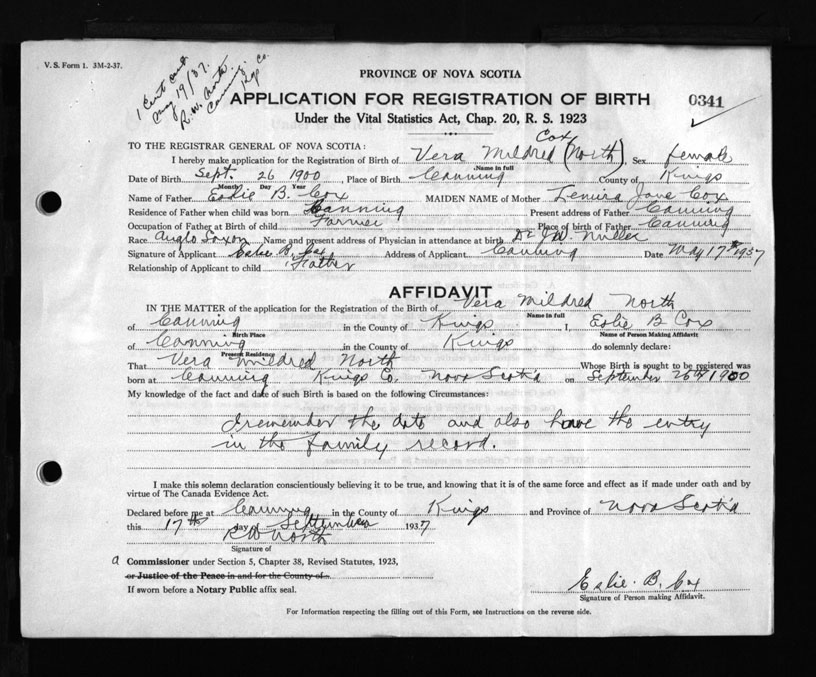 V. S. Form 1. 3M-2-37.
1 Cert
Aug 19/37.
R. W. North.
Canning, Co.
PROVINCE OF NOVA SCOTIA
APPLICATION FOR REGISTRATION OF BIRTH
0341
Under the Vital Statistics Act, Chap. 20, R. S. 1923
TO THE REGISTRAR GENERAL OF NOVA SCOTIA:
Cox
I hereby make application for the Registration of Birth of Vera Mildred (North), Sex female
Name in full
Date of Birth Sept. 26 1900 Place of Birth Canning County of Kings
Month Day Year
Name of Father B. Cox MAIDEN NAME of Mother Jane Cox
Residence of Father when child was born Canning Present address of Father Canning
Occupation of Father at Birth of child Farmer Place of birth of Father Canning
Race Anglo Saxon Name and present address of Physician in attendance at birth Dr J.W. Miller
Signature of Applicant Eslie B. Cox Address of Applicant Canning Date 17th 1937
Relationship of Applicant to child Father
AFFIDAVIT
IN THE MATTER of the application for the Registration of the Birth of Vera Mildred North
Name in full
of Canning in the County of Kings I, Eslie B Cox
Birth Place Name of Person Making Affidavit
of Canning in the County of Kings do solemnly declare:
Present Residence
That Vera Mildred North Whose Birth is sought to be registered was
born at Canning Kings Co. Nova Scotia on September 26th 1900
My knowledge of the fact and date of such Birth is based on the following Circumstances:
I remember the date and also have the entry
in the family record.
I make this solemn declaration conscientiously believing it to be true, and knowing that it is of the same force and effect as if made under oath and by
virtue of The Canada Evidence Act.
Declared before me at Canning in the County of Kings and Province of Nova Scotia
this 17th day of September 1937
R W North
Signature of
a Commissioner under Section 5, Chapter 38, Revised Statutes, 1923,
or Justice of the Peace in and for the County of
If sworn before a Notary Public affix seal.
Eslie. B. Cox
Signature of Person making Affidavit.
For Information respecting the filling out of this Form, see Instructions on the reverse side.